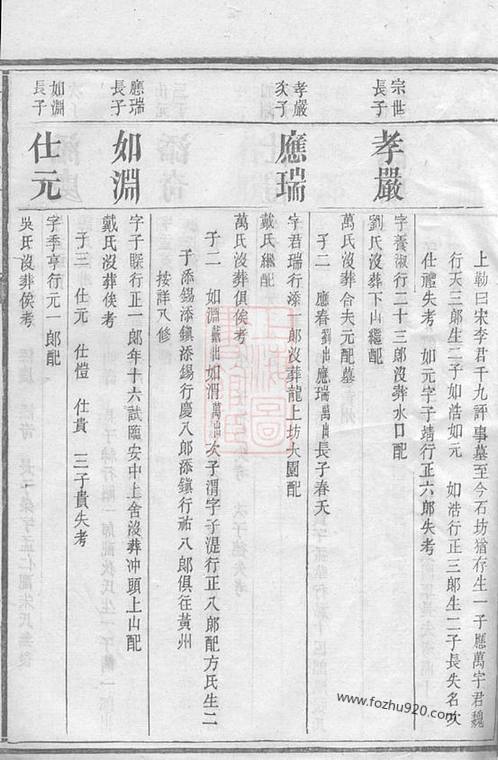 上勒曰宋李君千九評事墓至今石坊猶存生一子應萬字君魏
行天三郎生二子如浩如元　如浩行正三郎生二子長失名次
仕禮失考　如元字子靖行正六郎失考
宗世
長子
孝嚴
字養淑行二十三郎沒葬水口配
劉氏沒葬下山繼配
萬氏沒葬合夫元配墓
子二　應春劉出應瑞萬出長子春夭
孝嚴
次子
應瑞
字君瑞行添一郎沒葬龍上坊大園配
戴氏繼配
萬氏沒葬俱俟考
子二　如淵戴出如渭萬出次子渭字子湜行正八郎配方氏生二
子添錫添鎮添錫行慶八郎添鎮行祐八郎俱在黃州
按詳八修
應瑞
長子
如淵
字子睽行正一郎年十六試臨安中上舍沒葬冲頭上山配
戴氏沒葬俟考
子三　仕元　仕愷　仕貴　三子貴失考
如淵
長子
仕元
字季亨行元一郎配
吳氏沒葬俟考
www.fozhu920.com